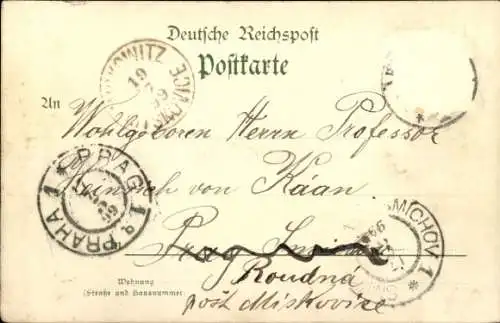 Deutsche Reichspost
Postkarte
An
Wohlgeboren Herrn Professor
Heinrich von Káan
Prag Smichov
Roudná
pošt Miskovice
Wohnung
(Straße und Hausnummer)
PRAG 1
PRAHA 1
SMICHOV 1